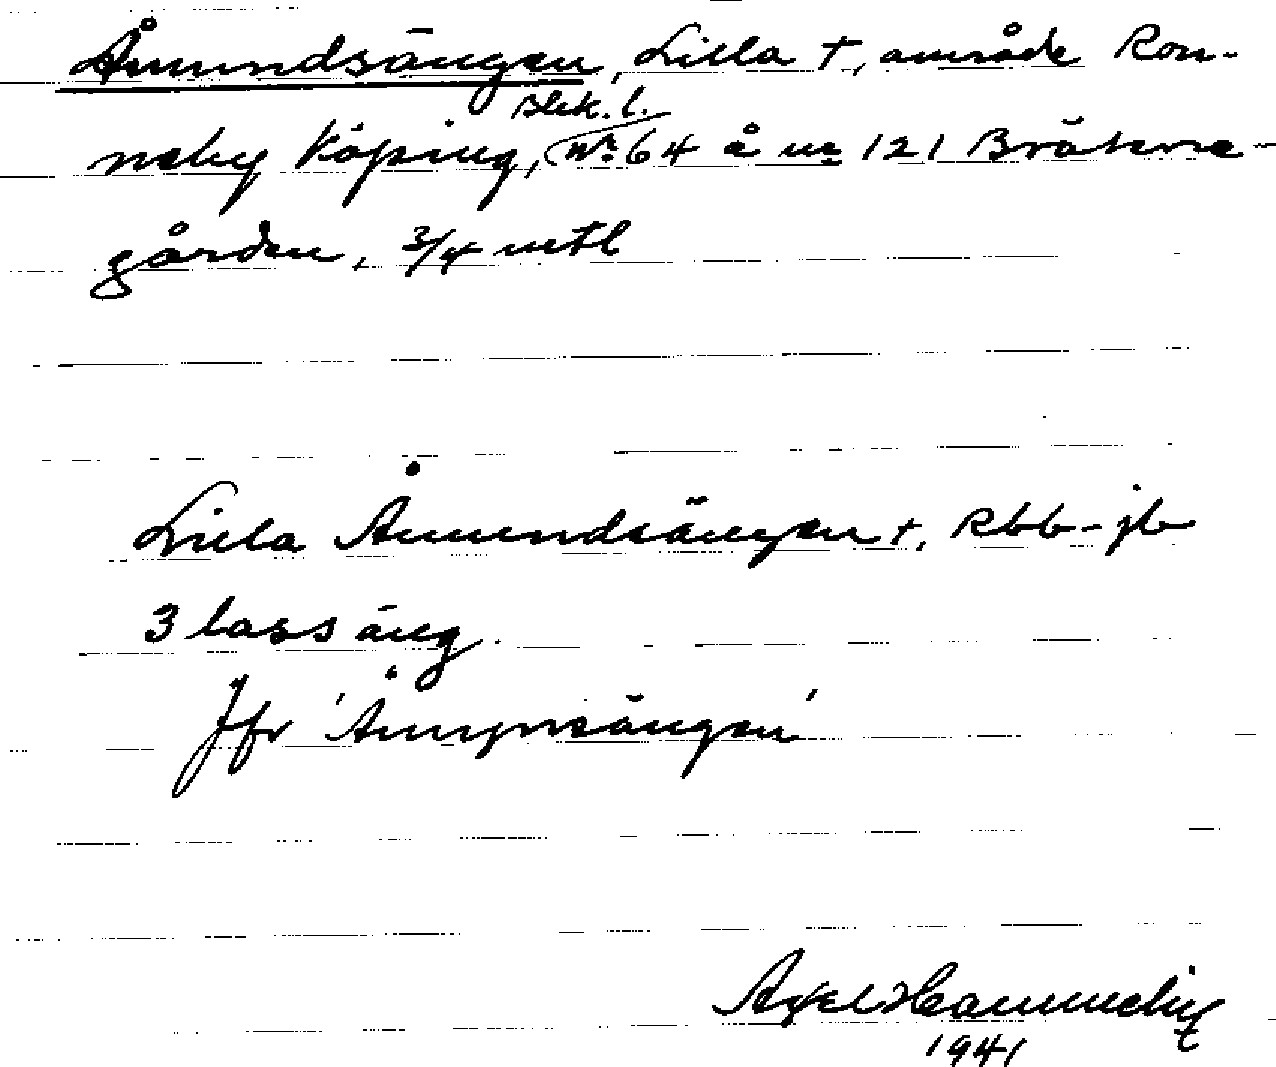 Åmundsängen, Lilla †, område Ron-
Blek. l.
neby köping, Nr. 64 å nr 121 Bräkne-
gården, 3/4 mtl
Lilla Åmundsängen †, Rbb-jb
3 lass äng.
Jfr 'Åmynsängen'
Axel Hammeby
1941